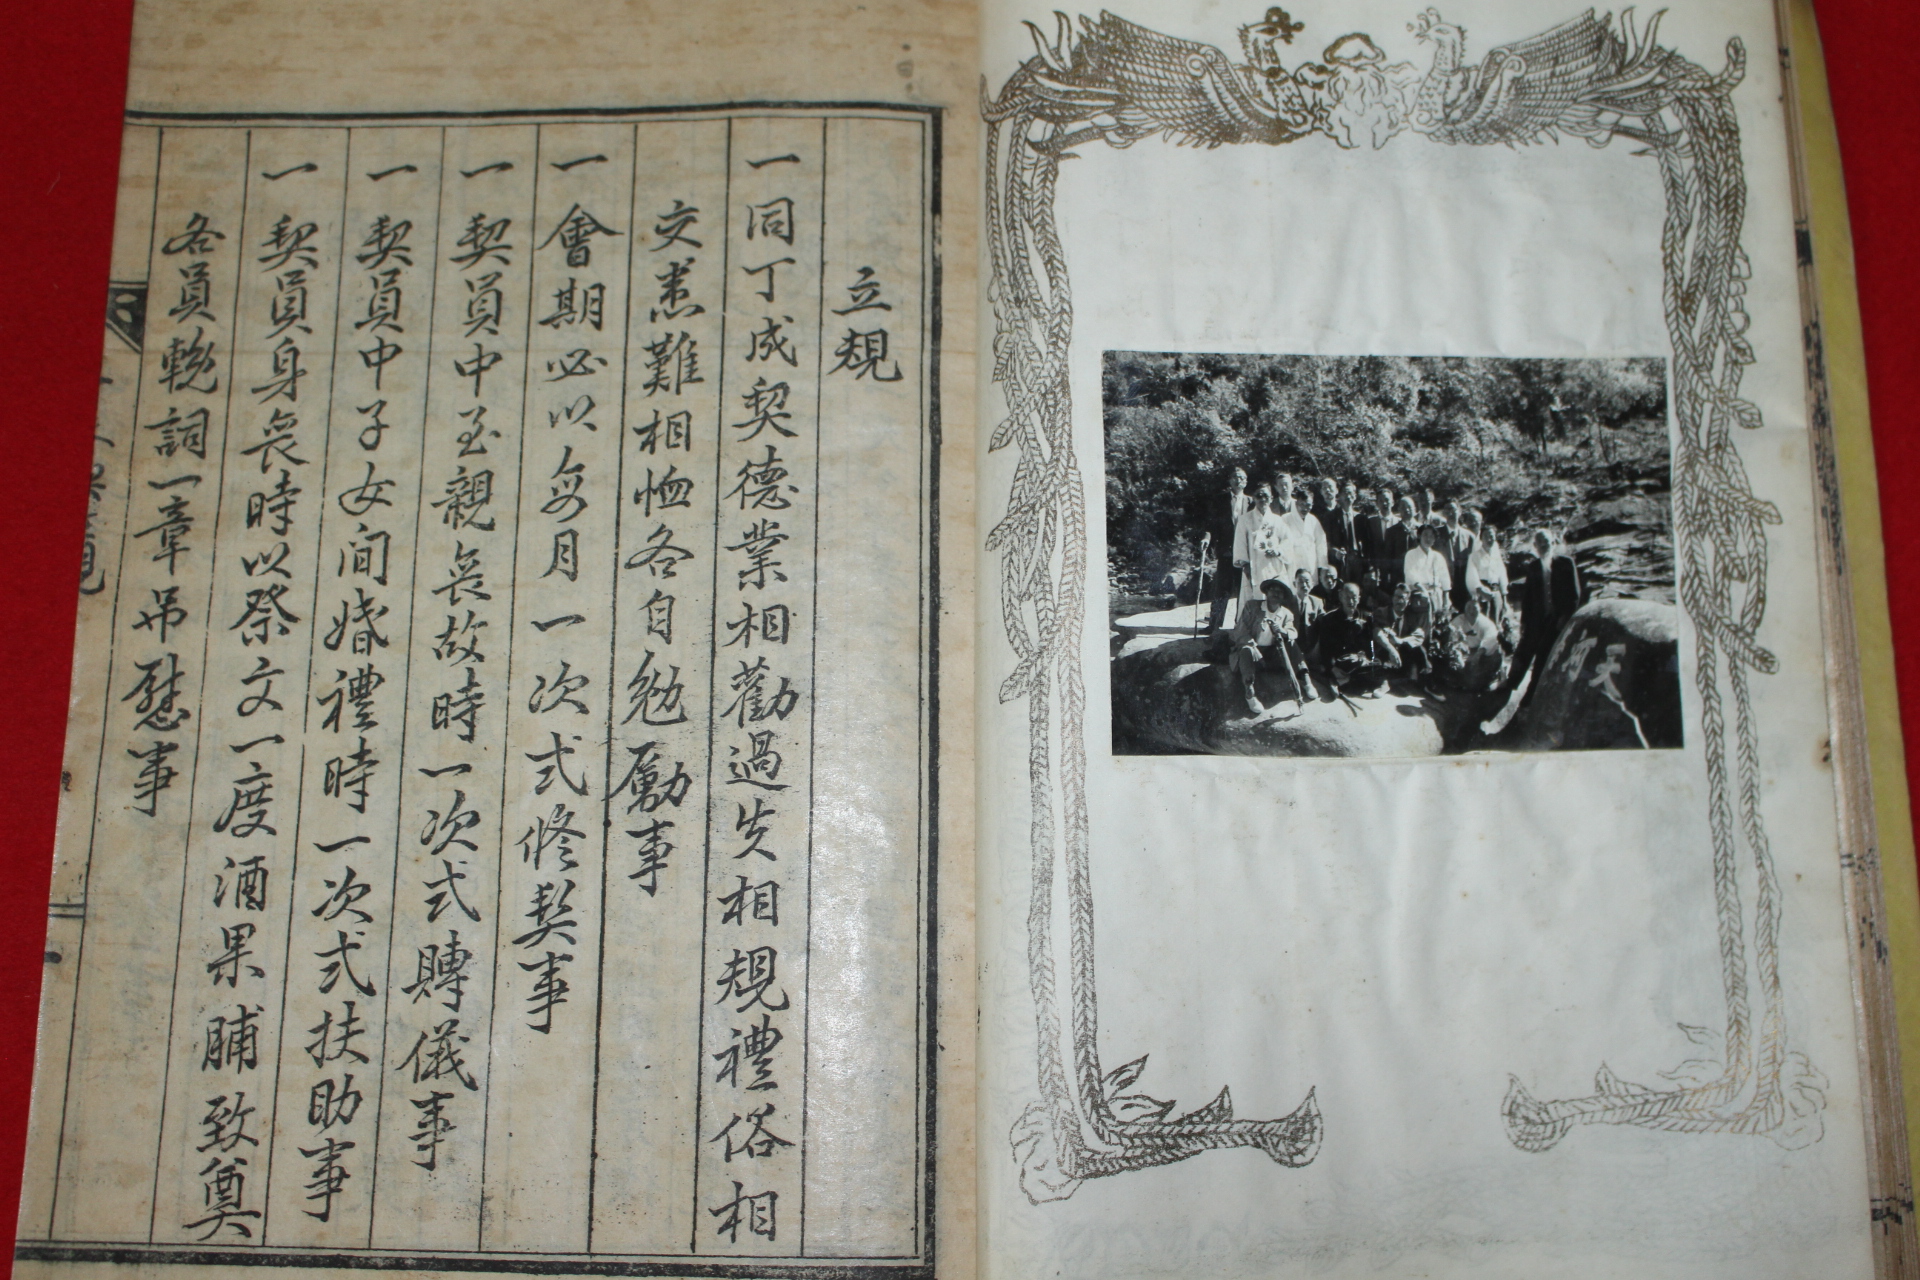 立規
一同丁成契德業相勸過失相規禮俗相
交患難相恤各自勉勵事
一會期必以每月一次式修契事
一契員中至親喪故時一次式賻儀事
一契員中子女間婚禮時一次式扶助事
一契員身喪時以祭文一度酒果脯致奠
各員輓詞一章吊慰事
天